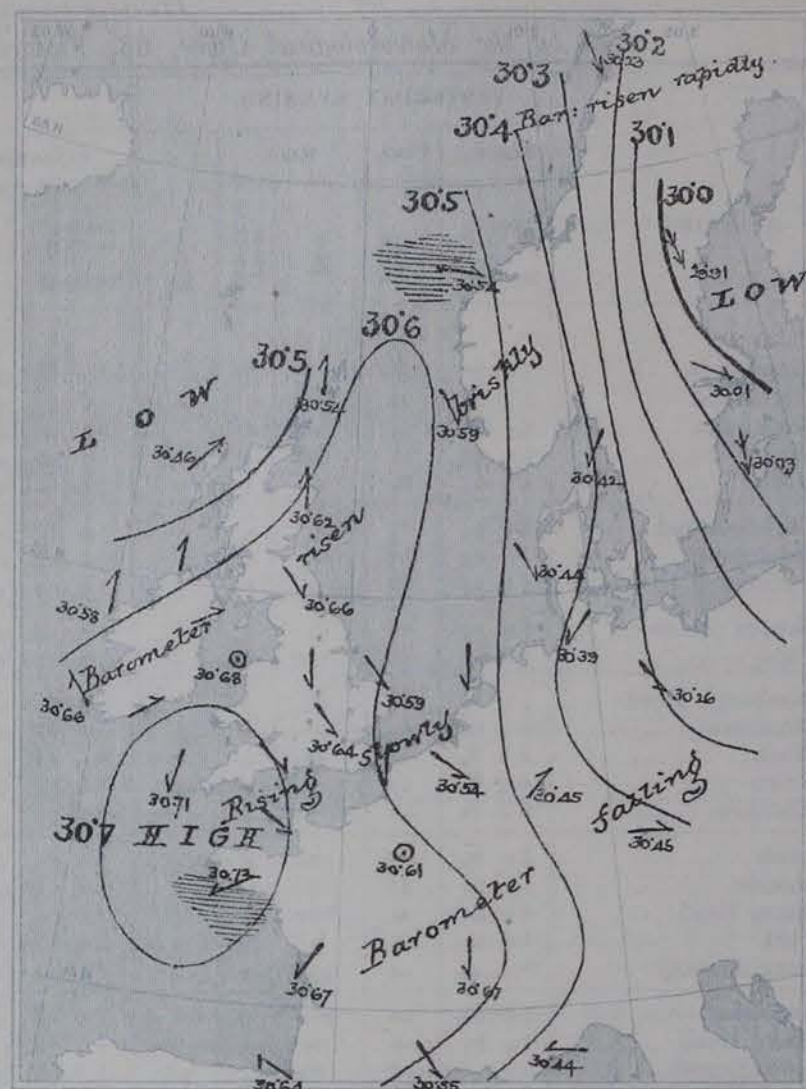 30·2
30·23
30·3
Bar: risen rapidly.
30·4
30·1
30·0
30·5
29·91
30·54
LOW
30·6
30·5
30·01
30·54
briskly
LOW
30·59
30·46
30·03
30·42
30·62
risen
30·44
30·58
30·66
30·39
Barometer
30·68
30·59
30·26
30·66
30·64
slowly
30·54
30·45
falling
30·71
Rising
30·7 HIGH
30·45
30·61
30·73
Barometer
30·67
30·67
30·44
30·64
30·55